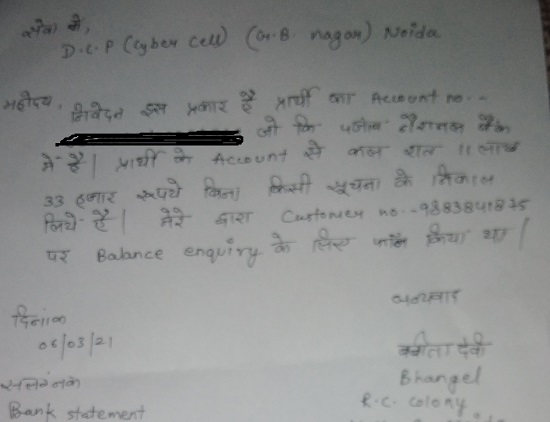 सेवा में,
D.C.P (Cyber Cell) (G.B. nagar) Noida
महोदय,
निवेदन इस प्रकार है प्रार्थी का Account no.-
जो कि पंजाब नैशनल बैंक
में है। प्रार्थी के Account से कल रात 11 लाख
33 हजार रूपये बिना किसी सूचना के निकाल
लिये है। मेरे द्वारा Customer no.-9883841875
पर Balance enquiry के लिए फोन किया था।
धन्यवाद
दिनांक
06/03/21
कविता देवी
Bhangel
R.C. colony
सलंग्नक
Bank statement